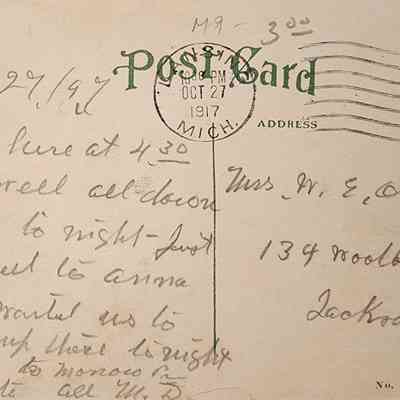 M9 - 3.00
Post Card
LANSING
PM
OCT 27
1917
MICH.
ADDRESS
27/97
here at 4 30
well all down
to night - Just
to anna
wanted us to
up there to night
to morrow
all M. D.
Mrs. W. E. O
134 Woolb
Jackso
No.